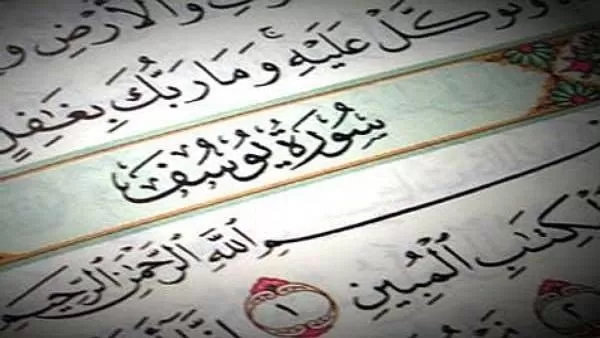 وَالْأَرْضِ
وَتَوَكَّلْ عَلَيْهِ ۚ وَمَا رَبُّكَ بِغَـٰفِلٍ
سُورَةُ يُوسُفَ
بِسْمِ اللَّهِ الرَّحْمَٰنِ الرَّحِيمِ
الْكِتَـٰبِ الْمُبِينِ ١
إِنَّا ٢